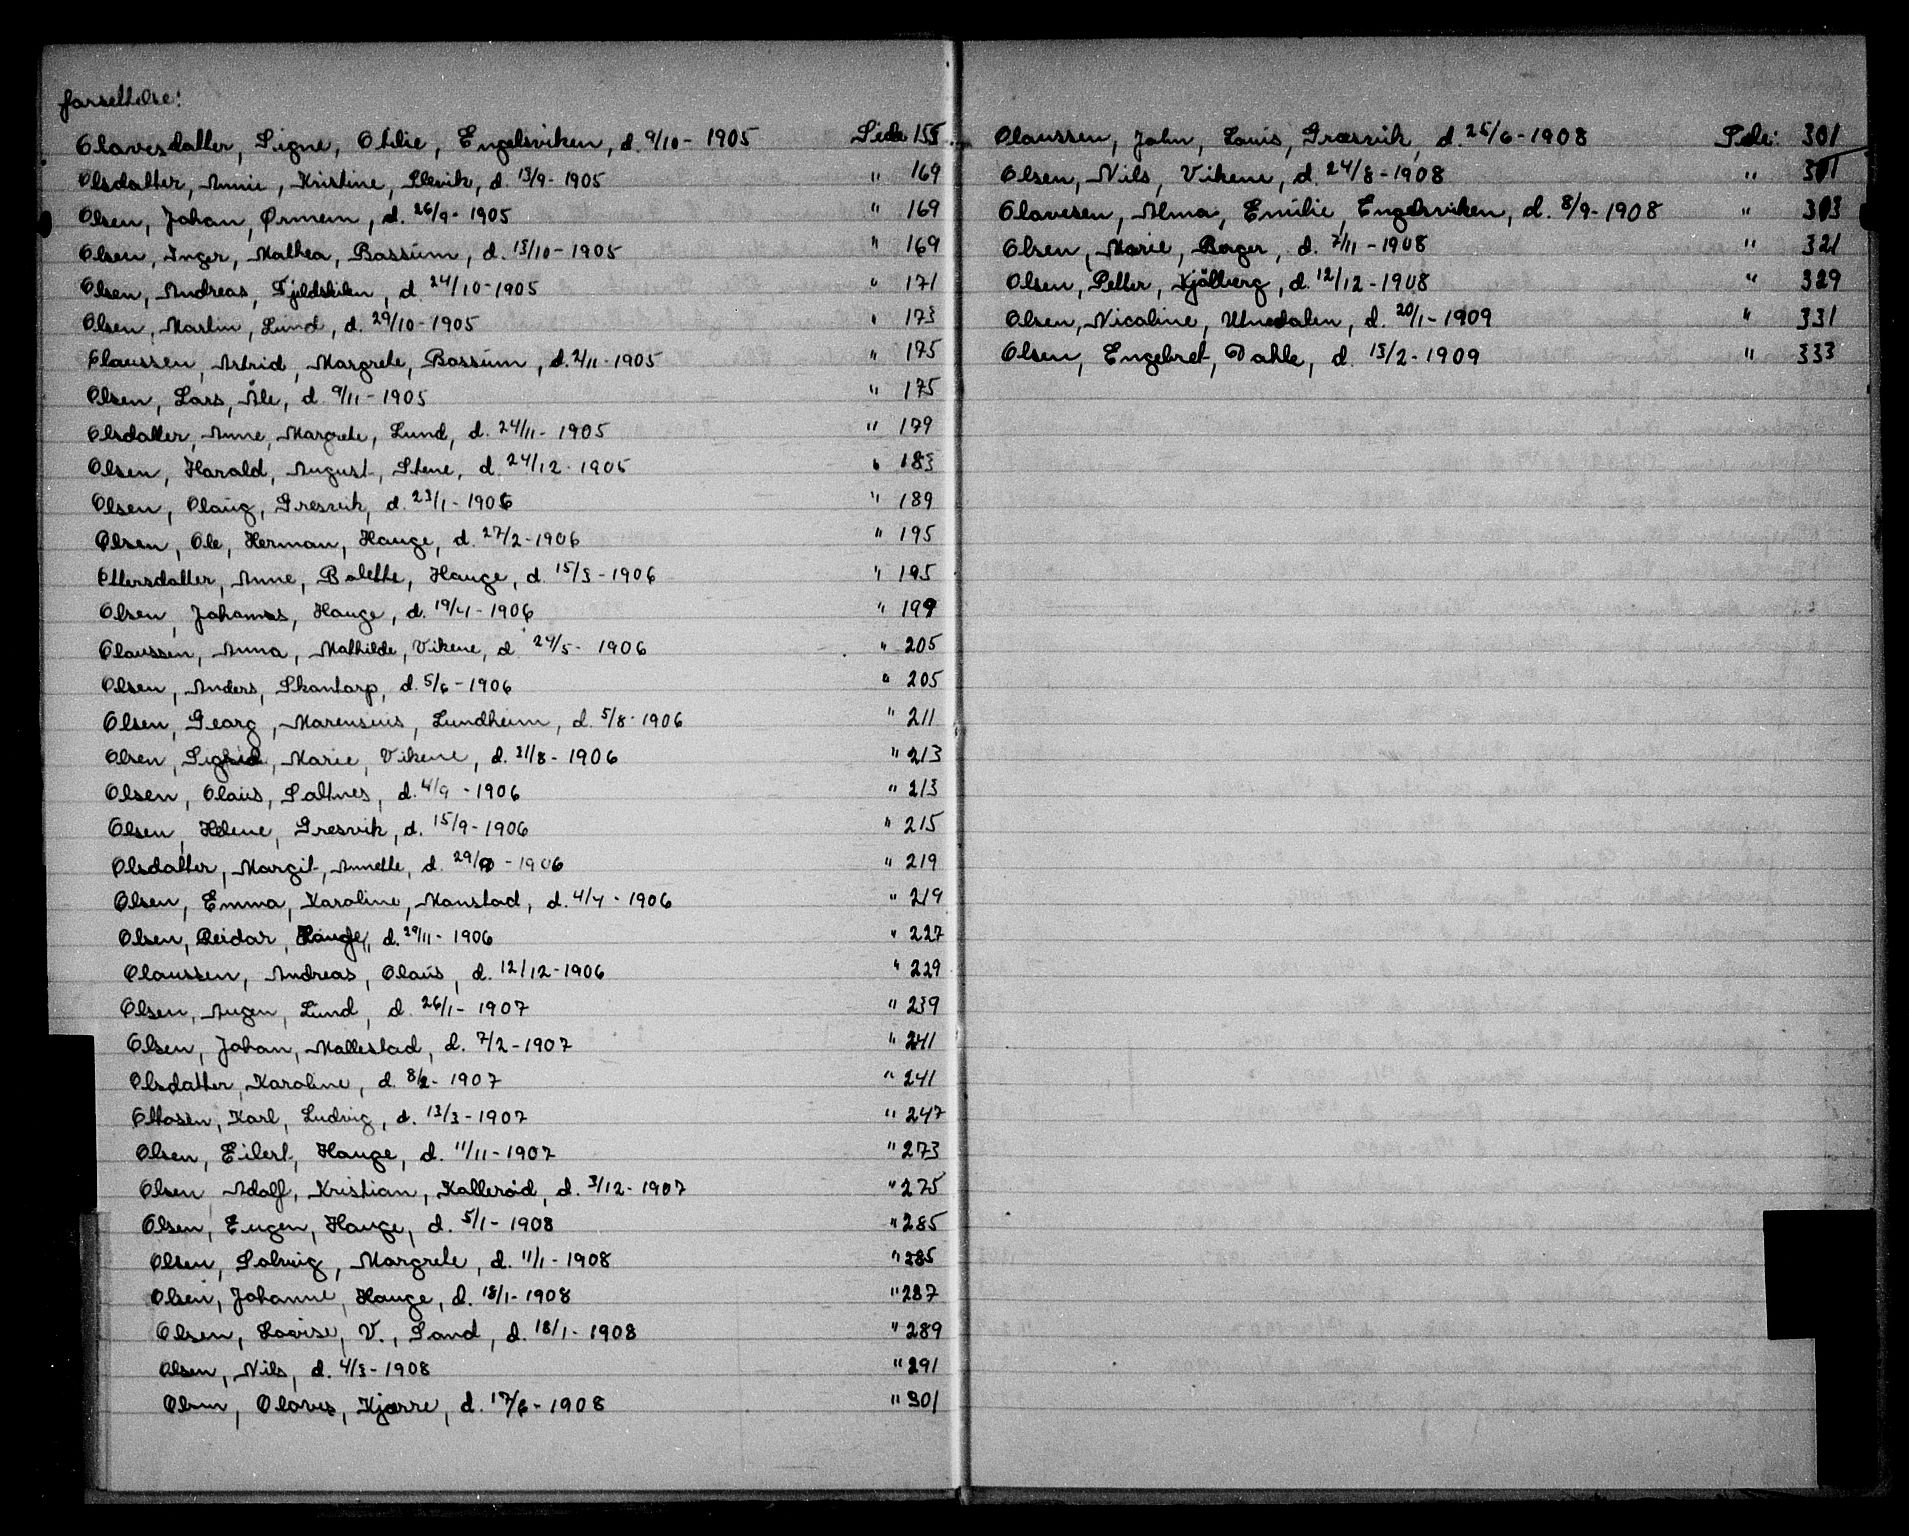 forsettelse:
Olavesdatter, Signe, Othlie, Engelsviken, d. 9/10 - 1905 Side 155
Olsdatter, Annie, Kristine, Elevik, d. 13/9 - 1905 " 169
Olsen, Johan, Ørmen, d. 26/9 - 1905 " 169
Olsen, Inger, Mathea, Bossum, d. 15/10 - 1905 " 169
Olsen, Andreas, Fjeldskilen, d. 24/10 - 1905 " 171
Olsen, Martin, Lund, d. 29/10 - 1905 " 173
Olaussen, Astrid, Margrete, Bossum, d. 2/11 - 1905 " 175
Olsen, Lars, Ale, d. 9/11 - 1905 " 175
Olsdatter, Anne, Margrete, Lund, d. 24/11 - 1905 " 179
Olsen, Harald, August, Stene, d. 24/12 - 1905 " 183
Olsen, Olaug, Gresvik, d. 23/1 - 1906 " 189
Olsen, Ole, Herman, Hauge, d. 27/2 - 1906 " 195
Ottersdatter, Anne, Bolette, Hauge, d. 15/3 - 1906 " 195
Olsen, Johannes, Hauge, d. 19/4 - 1906 " 199
Olaussen, Anna, Mathilde, Vikene, d. 24/5 - 1906 " 205
Olsen, Anders, Skantorp, d. 5/6 - 1906 " 205
Olsen, Georg, Marensius, Lundheim, d. 5/8 - 1906 " 211
Olsen, Sigrid, Marie, Vikene, d. 31/8 - 1906 " 213
Olsen, Olaus, Saltnes, d. 4/9 - 1906 " 213
Olsen, Helene, Gresvik, d. 15/9 - 1906 " 215
Olsdatter, Margit, Annette, d. 29/ - 1906 " 219
Olsen, Emma, Karoline, Monstad, d. 4/4 - 1906 " 219
Olsen, Reidar, Hauge, d. 29/11 - 1906 " 227
Olaussen, Andreas, Olaus, d. 12/12 - 1906 " 229
Olsen, Augen, Lund, d. 26/1 - 1907 " 239
Olsen, Johan, Mallestad, d. 7/2 - 1907 " 241
Olsdatter, Karoline, d. 8/2 - 1907 " 241
Ottosen, Karl, Ludvig, d. 13/3 - 1907 " 247
Olsen, Eilert, Hauge, d. 11/11 - 1907 " 273
Olsen Adolf, Kristian, Kallerød, d. 3/12 - 1907 " 275
Olsen, Eugen, Hauge, d. 5/1 - 1908 " 285
Olsen, Solveig, Margrete, d. 11/1 - 1908 " 285
Olsen, Johanne, Hauge, d. 18/1 - 1908 " 287
Olsen, Lovise, V., Sand, d. 18/1 - 1908 " 289
Olsen, Nils, d. 4/3 - 1908 " 291
Olsen, Olaves, Kjærre, d. 17/6 - 1908 " 301
Olaussen, John, Louis, Græsvik, d. 25/6 - 1908 Side: 301
Olsen, Nils, Vikene, d. 24/8 - 1908 " 301
Olavesen, Alma, Emilie, Engelsviken, d. 8/9 - 1908 " 303
Olsen, Marie, Borger, d. 7/11 - 1908 " 321
Olsen, Petter, Kjølberg, d. 12/12 - 1908 " 329
Olsen, Nicoline, Utnedalen, d. 20/1 - 1909 " 331
Olsen, Engebret, Dahle, d. 15/2 - 1909 " 333